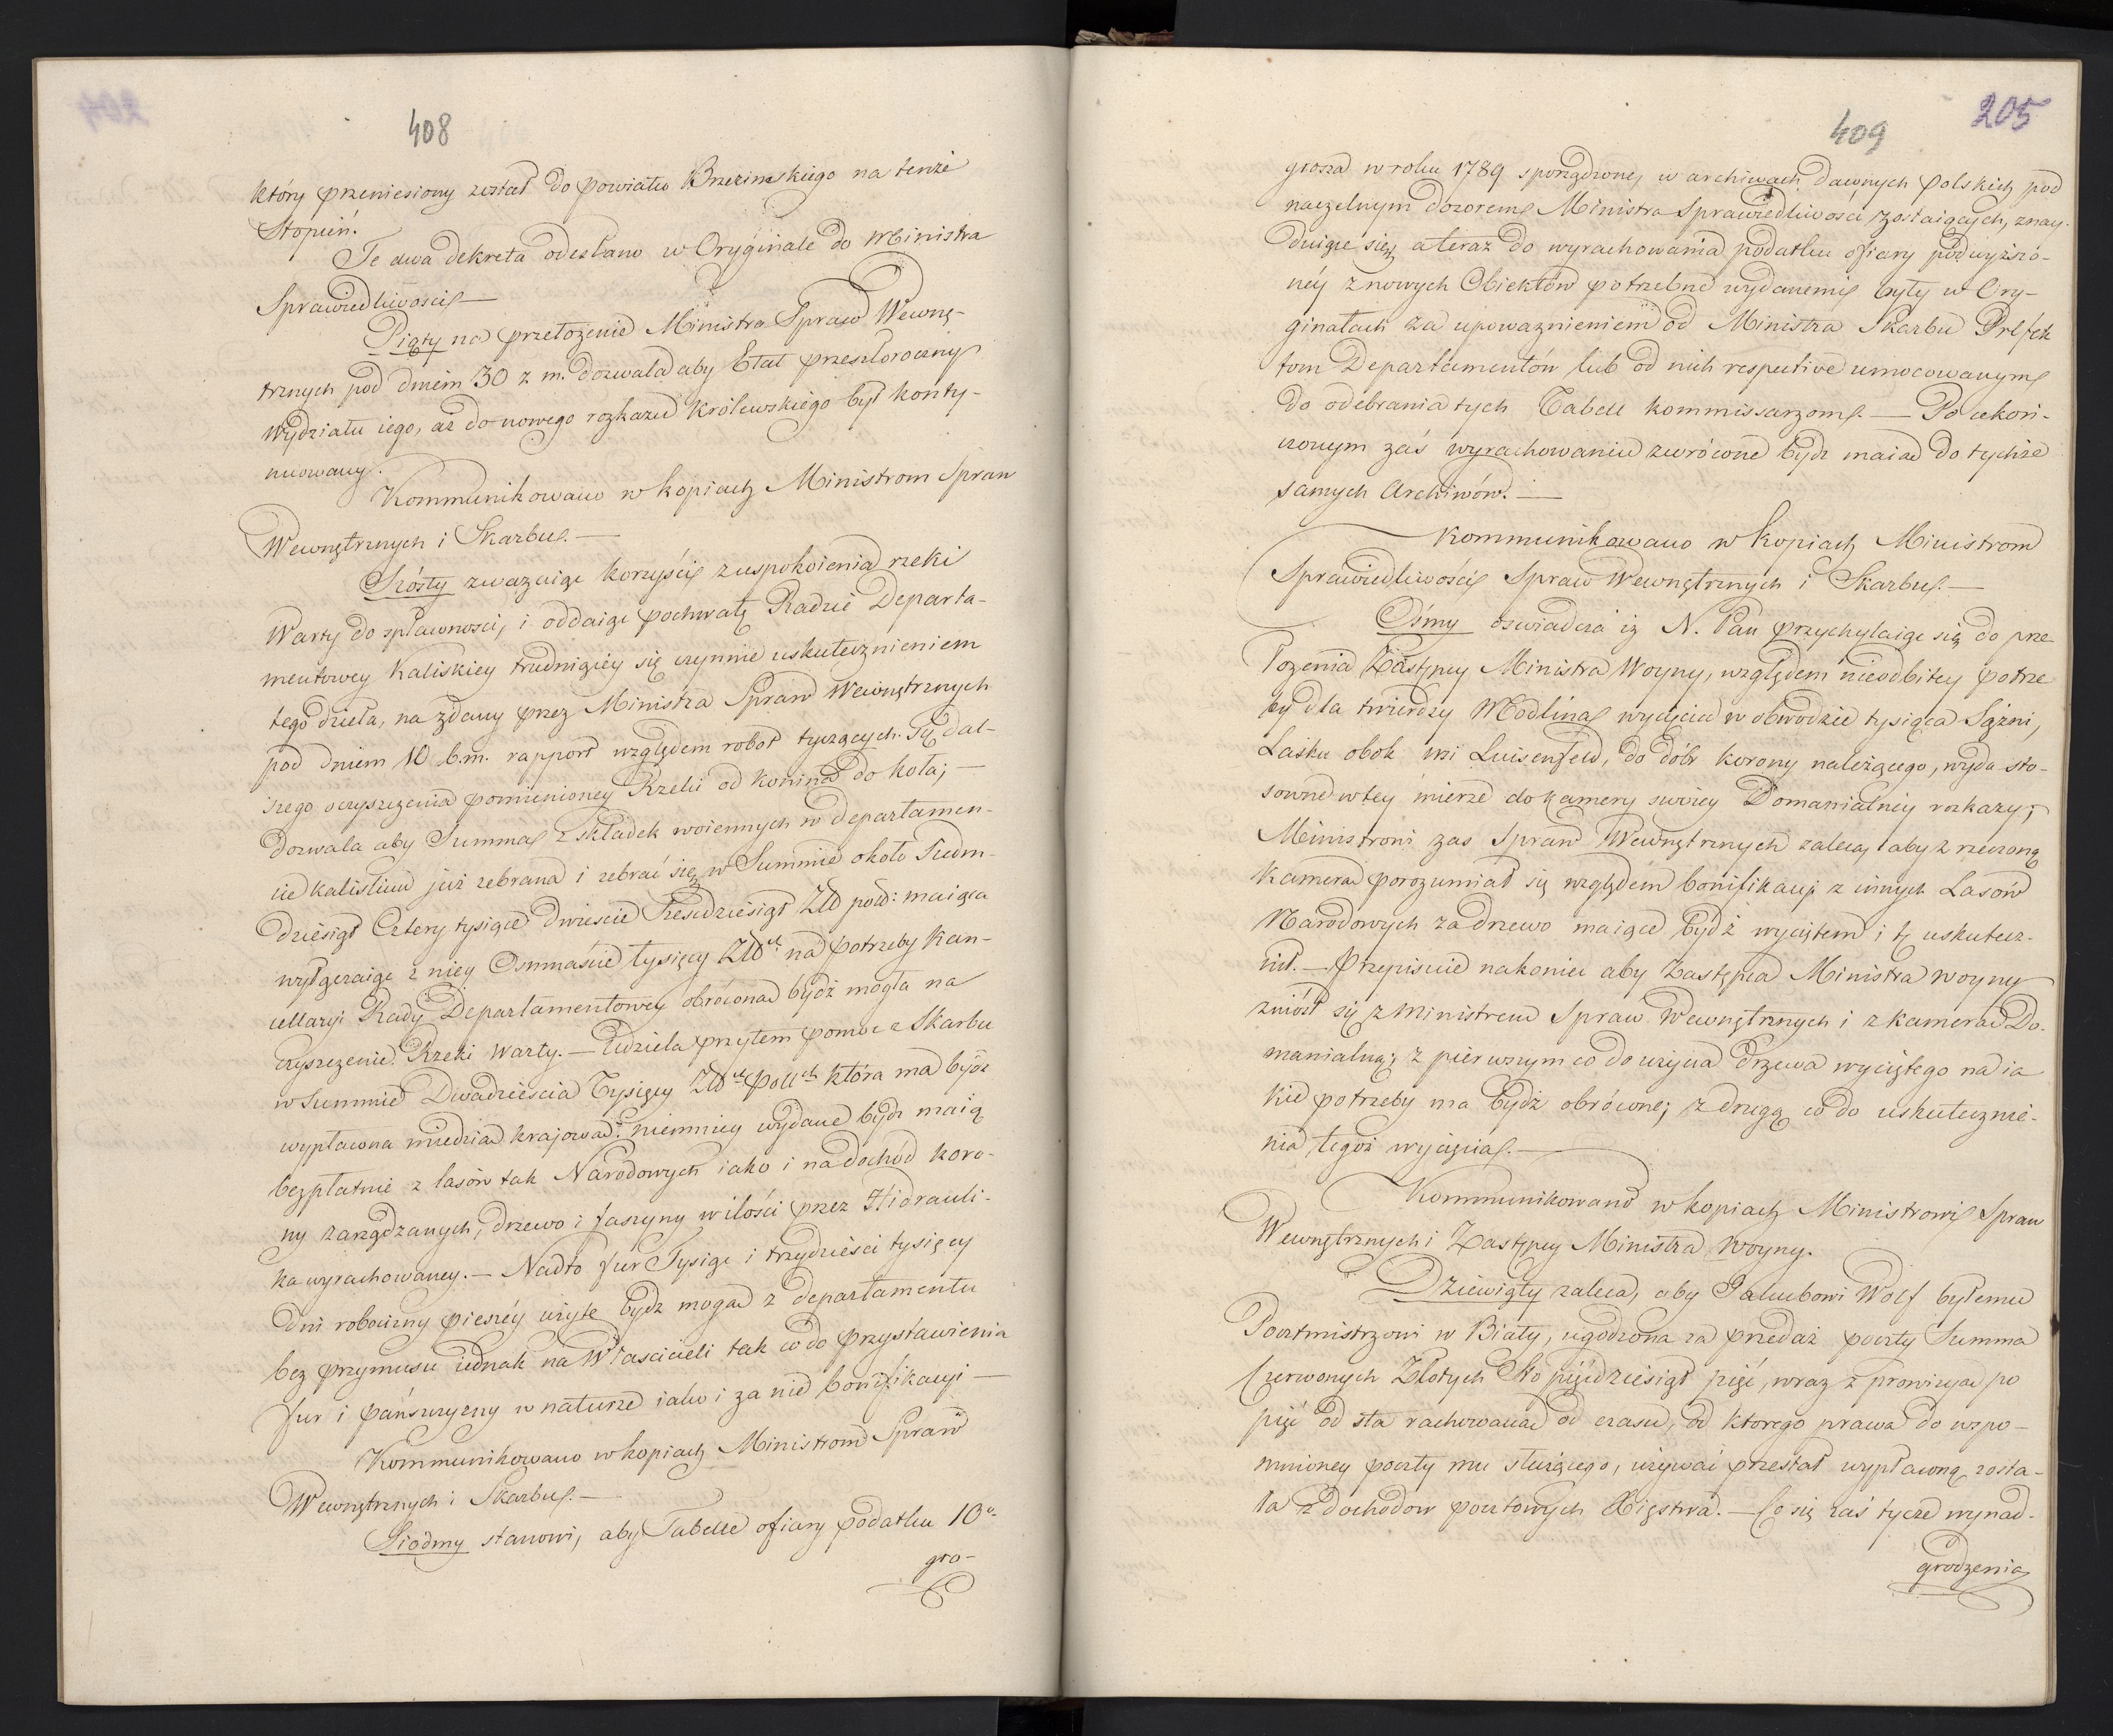 408
który przeniesiony został do powiatu Brzezinskiego na tenże
Stopień.
Te dwa dekreta odesłano w Oryginale do Ministra
Sprawiedliwości —
Piąty na przełożenie Ministra Spraw Wewnę-
trznych pod dniem 30 z. m. dozwala aby Etat przeszłoroczny
Wydziału iego, aż do nowego rozkazu Królewskiego był konty-
nuowany.
Kommunikowano w kopiach Ministrom Spraw
Wewnętrznych i Skarbu. —
Szósty zważaiąc korzyści z uspokoienia rzeki
Warty do spławności, i oddaiąc pochwałę Radzie Departa-
mentowey Kaliskiey trudniącey się czynnie uskutecznieniem
tego dzieła, na zdany przez Ministra Spraw Wewnętrznych
pod dniem 10 b. m. rapport względem robot tyczących się dal-
szego oczyszczenia pomienioney Rzeki od Konina do Koła; —
dozwala aby Summa z składek woiennych w departamen-
cie kaliskim już zebrana i zebrać się w Summie około Siedm-
dziesiąt Cztery tysiące dwieście Sześćdziesiąt Złł. pol: maiąca
wyłączaiąc z niey Osmnaście tysięcy Złłch na potrzeby Kan-
cellaryi Rady Departamentowey obrócona bydź mogła na
czyszczenie Rzeki Warty. — Udziela przytem pomoc z Skarbu
w Summie Dwadzieścia Tysięcy Złłch Pollch która ma bydź
wypłacona miedzią krajową: niemniey wydane bydź maią
bezpłatnie z lasów tak Narodowych iako i na dochód koro-
ny zarządzanych, drzewo i faszyny w ilości przez Hidrauli-
ka wyrachowaney. — Nadto fur Tysiąc i trzydzieści tysięcy
dni roboczny pieszéy użyte bydź mogą z departamentu
bez przymusu iednak na Właścicieli tak co do przystawienia
fur i pańszczyzny w naturze iako i za nie bonifikacyi —
Kommunikowano w kopiach Ministrom Spraw
Wewnętrznych i Skarbu. —
Siodmy stanowi, aby Tabelle ofiary podatku 10o
gro-
205
409
grosza w roku 1789 sporządzoney w archiwach dawnych polskich pod
naczelnym dozorem Ministra Sprawiedliwości zostaiących, znay-
duiące się, a teraz do wyrachowania podatku ofiary podwyższo-
néy z nowych Obiektów potrzebne wydanemi były w Ory-
ginałach za upoważnieniem od Ministra Skarbu Prefek
tom Departamentów lub od nich respective umocowanym
do odebrania tych Tabell Kommissarzom. — Po ukoń-
czonym zaś wyrachowaniu zwrócone bydź maią do tychże
samych Archiwów. —
Kommunikowano w Kopiach Ministrom
Sprawiedliwości Spraw Wewnętrznych i Skarbu. —
Osmy oświadcza iż N. Pan przychylaiąc się do prze
łożenia Zastępcy Ministra Woyny, względem nieodbitey potrze
by dla twierdzy Modlina wycięcia w obwodzie tysiąca Sążni,
Lasku obok wsi Luisenfeld, do dóbr korony należącego, wyda sto-
sowne w tey mierze do kamery swoiey Domanialney rozkazy;
Ministrowi zas Spraw Wewnętrznych zaleca, aby z rzeczoną
Kamerą porozumiał się względem bonifikacyi z innych Lasów
Narodowych za drzewo maiące bydź wyciętem i tę uskutecz-
nił. — Przepisuie nakoniec aby Zastępca Ministra woyny
zniósł się z Ministrem Spraw Wewnętrznych i z kamerą Do-
manialną; z pierwszym co do użycia drzewa wyciętego na ia
kie potrzeby ma bydź obrócone; z drugą co do uskutecznie-
nia tegoż wycięcia. —
Kommunikowano w kopiach Ministrowi Spraw
Wewnętrznych i Zastępcy Ministra Woyny.
Dziewiąty zaleca, aby Jakubowi Wolf byłemu
Pocztmistrzowi w Biały, ugodzona za przedaż poczty Summa
Czerwonych Złotych Sto pięćdziesiąt pięć, wraz z prowizyą po
pięć od sta rachowaną od czasu, od ktorego prawa do wspo-
mnioney poczty mu służącego, używać przestał wypłaconą zosta-
ła z dochodow pocztowych Xięstwa. — Co się zaś tycze wynad-
grodzenia